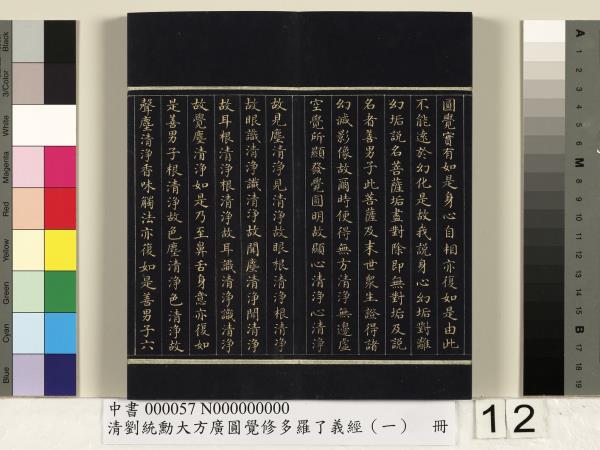 圓覺實有如是身心自相亦復如是由此
不能遠於幻化是故我說身心幻垢對離
幻垢說名菩薩垢盡對除即無對垢及說
名者善男子此菩薩及末世眾生證得諸
幻滅影像故爾時便得無方清淨無邊虛
空覺所顯發覺圓明故顯心清淨心清淨
故見塵清淨見清淨故眼根清淨根清淨
故眼識清淨識清淨故聞塵清淨聞清淨
故耳根清淨根清淨故耳識清淨識清淨
故覺塵清淨如是乃至鼻舌身意亦復如
是善男子根清淨故色塵清淨色清淨故
聲塵清淨香味觸法亦復如是善男子六
中書 000057 N000000000
清劉統勳大方廣圓覺修多羅了義經（一） 冊
12
Black
3/Color
White
Magenta
Red
Yellow
Green
Cyan
Blue
A 1 2 3 4 5 6 M 8 9 10 11 12 13 14 15 B 17 18 19